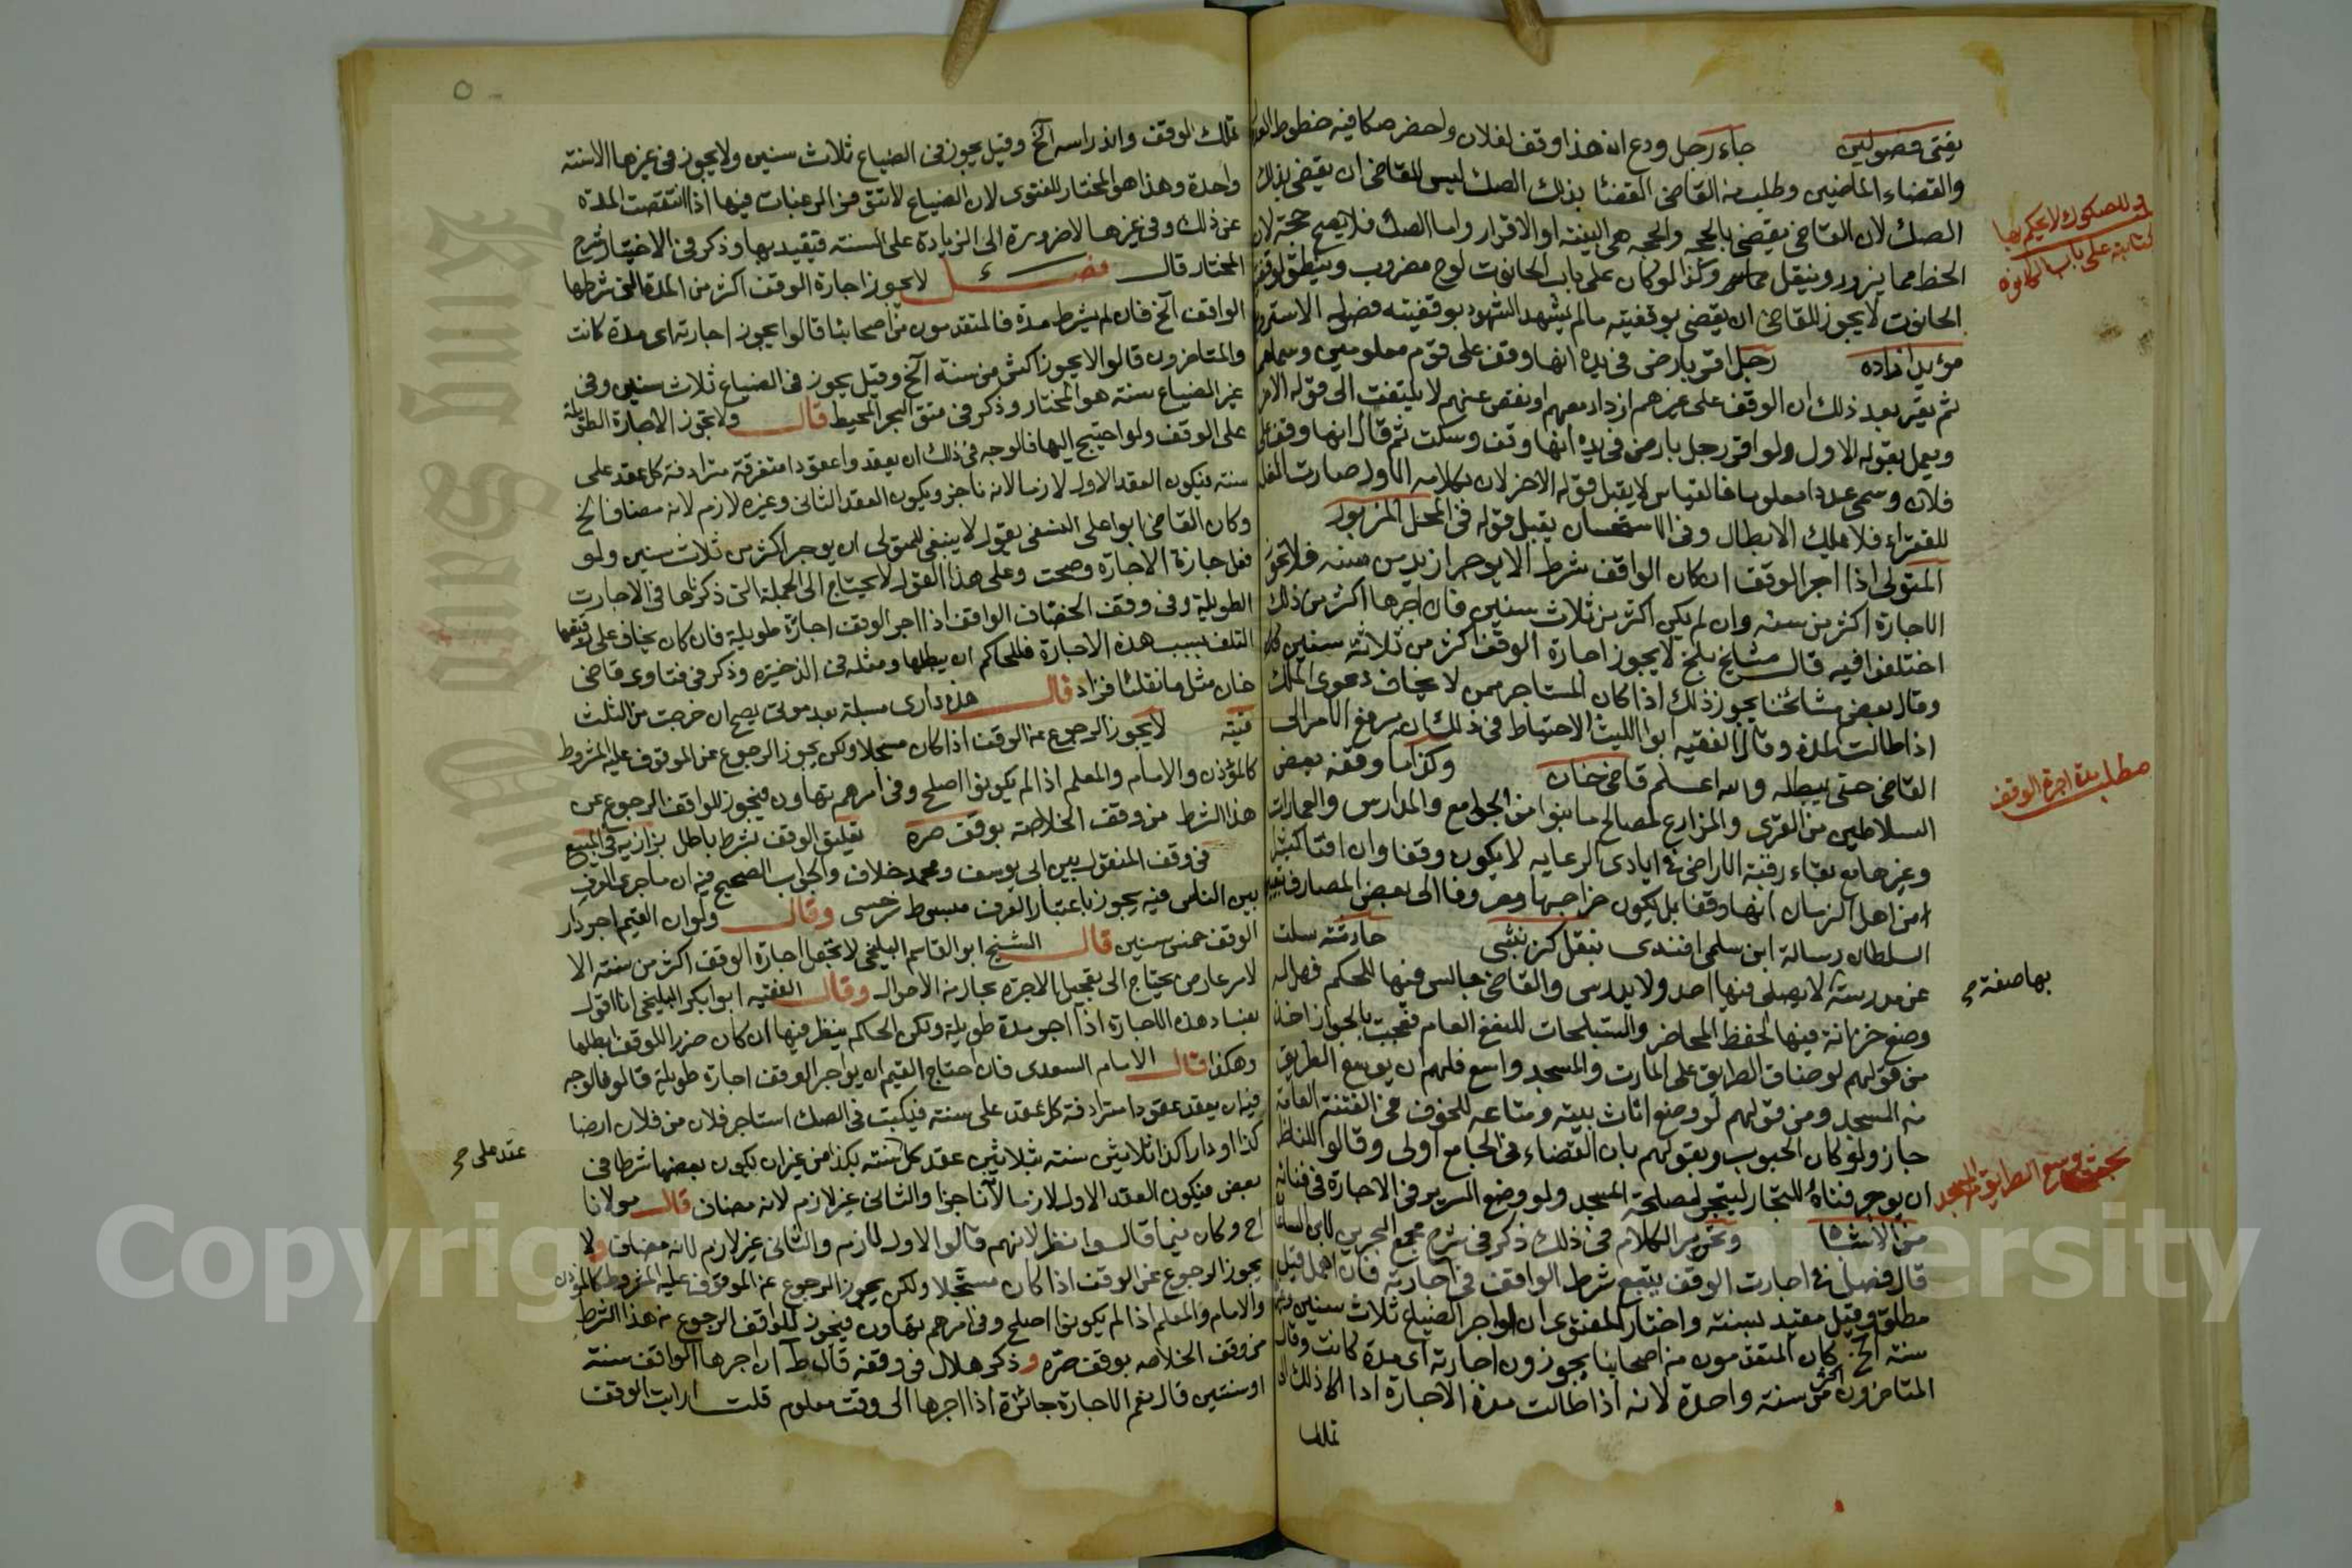 يفتى فصولين جاء رجل ودع ان هذا وقف لفلان واحضر صكا فيه خطوط العدول
والقضاء الماضيين وطلب من القاضى القضا بذلك الصك ليس للقاضى ان يقضى بذلك
الصك لان القاضى يقضى بالحجه والحجه هى البينه او الاقرار واما الصك فلا يصح حجة لان
الخط مما يزور ويفتعل وكذا لو كان على باب الحانوت لوح مضروب وينطق لوقف
الحانوت لا يجوز للقاضى ان يقضى بوقفيته مالم يشهد الشهود بوقفيته فصول الاستروشنى
مؤيد زاده رجل اقر بارض فى يده انها وقف على قوم معلومين وسماهم
ثم يقر بعد ذلك ان الوقف على غيرهم او زاد معهم او نقص عنهم لا يلتفت الى قوله الاخر
ويعمل بقوله الاول ولو اقر رجل بارض فى يده انها وقف وسكت ثم قال انها وقف على
فلان وسمى عددا معلوما فالقياس لا يقبل قوله الاخر لان بكلامه الاول صارت الغله
للفقراء فلا يملك الابطال وفى الاستحسان يقبل قوله فى المحل المزبور
المتولى اذا اجر الوقف ان كان الواقف شرط الا يوجر ازيد من سنه فلا تجوز
الاجارة اكثر من سنه وان لم يكن اكثر من ثلاث سنين فان اجرها اكثر من ذلك
اختلفوا فيه قال مشايخ بلخ لا يجوز اجارة الوقف اكثر من ثلاثة سنين
وقال بعض مشائخنا يجوز ذلك اذا كان المستاجر ممن لا يخاف دعوى الملك
اذا طالت المدة وقال الفقيه ابوا الليث الاحتياط فى ذلك ان يرفع الامر الى
القاضى حتى يبطله والله اعلم قاضى خان وكذا ما وقفه بعض
السلاطين من القرى والمزارع لمصالح ما بنوا من الجوامع والمدارس والعمارات
وغيرها مع بقاء رقبة الاراضى فى ايادى الرعايه لا يكون وقفا وان افتا كثير
من اهل الزمان انها وقفا بل يكون خراجها مصروفا الى بعض المصارف
السلطان رسالة ابن سلمى افندى بنقل كزنبشى حادثته سلت
عن مدرسة لا يصلى فيها احد ولا يدرس والقاضى جالس فيها للحكم فهل له
وضع خزانة فيها لحفظ المحاضر والسجلات للنفع العام فجبت بالجواز اخذا
من قولهم لو ضاق الطريق على المارت والمسجد واسع فلهم ان يوسع الطريق
من المسجد ومن قولهم لو وضع اثاث بيته ومتاعه للخوف فى الفتنة العامة
جاز ولو كان الحبوب وبقولهم بان القضاء فى الجامع اولى وقالوا للناظر
ان يوجر فناه للتجار ليتجر لمصلحة المسجد ولو وضع السرير فى الاجارة فى فنائه
من الاشباه وتحرير الكلام فى ذلك ذكر فى شرح مجمع البحرين
قال فصل فى اجارت الوقف يتبع شرط الواقف فى اجارته فان اهمل قيل
مطلق وقيل مقيد بسنته واختار المفتوى ان يواجر الضياع ثلاث سنين
سنة الخ كان المتقدمون من اصحابنا يجوزون اجارته اى مدة كانت وقال
المتاخرون اكثر من سنه واحدة لانه اذا طالت مدة الاجارة ادا الى ذلك
تملك
وللصكوك لا يحكم بها
كتابة على باب الحانوت
مطلب مدة اجرة الوقف
بها صفة صح
توسع الطريق من المسجد
تملك الوقف واندراسه الخ وقيل يجوز فى الضياع ثلاث سنين ولا يجوز فى غيرها الا سنه
واحدة وهذا هو المختار للفتوى لان الضياع لا تتوفر الرغبات فيها اذا انتقصت المدة
عن ذلك وفى غيرها لا ضرورة الى الزيادة على السنه فتقيد بها وذكر فى الاختيار شرح
المختار قال فصل لا يجوز اجارة الوقف اكثر من المدة التى شرطها
الواقف الخ فان لم يشرط مدة فالمتقدمون من اصحابنا قالوا يجوز اجارته اى مدة كانت
والمتاخرون قالوا لا يجوز اكثر من سنة الخ وقيل يجوز فى الضياع ثلاث سنين وفى
غير الضياع سنه هو المختار وذكر فى البحر المحيط قال ولا تجوز الاجارة الطويلة
على الوقف ولو احتيج اليها فالوجه فى ذلك ان يعقدوا عقودا متفرقة مترادفة كل عقد على
سنه فيكون العقد الاول لازما لانه ناجز ويكون العقد الثانى وغيره لازم لانه مضاف الخ
وكان القاضى ابو على النسفى يقول لا ينبغى للمتولى ان يوجر اكثر من ثلاث سنين ولو
فعل جازة الاجاره وصحت وعلى هذا القول لا يحتاج الى الحيلة التى ذكرناها فى الاجارت
الطويلة وفى وقف الخصاف الواقف اذا اجر الوقف اجارة طويلة فان كان يخاف على رقبتها
التلف بسبب هذه الاجارة فللحاكم ان يبطلها ومثله فى الذخيره وذكر فى فتاوى قاضى
خان مثل ما نقلنا فزاد قال هذه دارى مسبلة بعد موتى يصح ان خرجت من الثلث
قنيه لا يجوز الرجوع عن الوقف اذا كان مسجلا ولكن يجوز الرجوع عن الموقوف عليه المشروط
كالمؤذن والامام والمعلم اذا لم يكونوا اصلح وفى امرهم تهاون فيجوز للواقف الرجوع عن
هذا الشرط من وقف الخلاصه بوقف صره تعليق الوقف بشرط باطل بزازيه فى البيع
فى وقف المنقول بين ابى يوسف ومحمد خلاف والجواب الصحيح فيه ان ما جرى العرف
بين الناس فيه يجوز باعتبار العرف مبسوط سرخسى وقال ولو ان القيم اجر دار
الوقف خمس سنين قال الشيخ ابو القاسم البلخى لا تجعل اجارة الوقف اكثر من سنته الا
لامر عارض يحتاج الى تعجيل الاجره بحال من الاحوال وقال الفقيه ابوا بكر البلخى انا اقول
بفساد هذه الاجارة اذا اجر مدة طويلة ولكن الحاكم ينظر فيها ان كان ضررا للوقف ابطلها
وهكذا قال الامام السعدى فان احتاج القيم ان يواجر الوقف اجارة طويلة قالوا فالوجه
فيه ان يعقد عقودا مترادفة كل عقد على سنته فيكتب فى الصك استاجر فلان من فلان ارضا
كذا او دارا كذا ثلاثين سنه بثلاثين عقد كل سنه بكذا من غير ان يكون بعضها شرطا فى
بعض فيكون العقد الاول لازما لانه ناجزا والثانى غير لازم لانه مضاف قال مولانا
اح وكان فيما قالوا نظر لانهم قالوا الاول لازم والثانى غير لازم لانه مضاف ولا
يجوز الرجوع عن الوقف اذا كان مسجلا ولكن يجوز الرجوع عن الموقوف عليه المشروط كالمؤذن
والامام والمعلم اذا لم يكونوا اصلح وفى امرهم تهاون فيجوز للواقف الرجوع من هذا الشرط
من وقف الخلاصه بوقف صره وذكر هلال فى وقفه قال ط ان اجرها الواقف سنته
او سنتين قال نعم الاجارة جائزة اذا اجرها الى وقت معلوم قلت ارايت الوقف
عقد على صح
King Saud University
Copyright © King Saud University